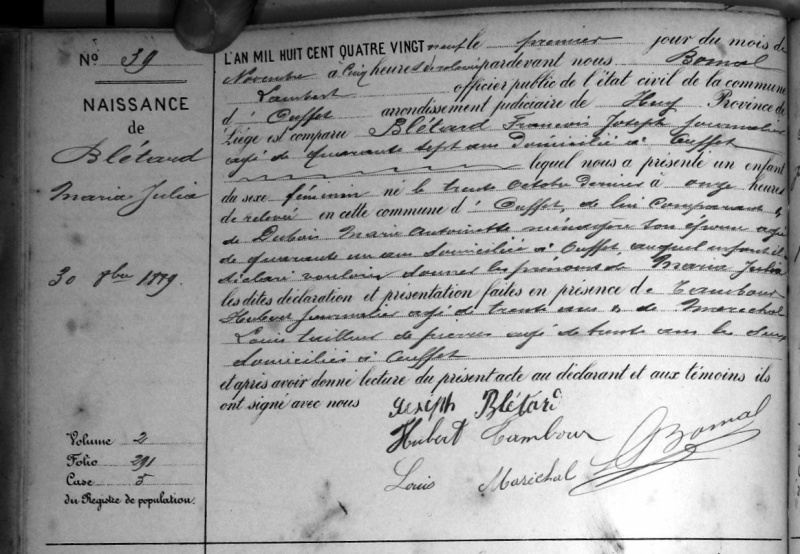 No 39
NAISSANCE
de
Blétard
Maria Julia
30 8bre 1889.
Volume 2
Folio 291
Case 5
du Registre de population.
L'AN MIL HUIT CENT QUATRE VINGT neuf le premier jour du mois de
Novembre à Cinq heures de relevée pardevant nous Bomal
Lambert officier public de l'état civil de la commune
d' Ouffet arrondissement judiciaire de Huy Province de
Liége est comparu Blétard François Joseph journalier
agé de quarante sept ans domicilié à Ouffet
lequel nous a présenté un enfant
du sexe féminin né le trente Octobre dernier à onze heures
de relevée en cette commune d' Ouffet, de lui Comparant &
de Dubois Marie Antoinette ménagère son épouse agée
de quarante un ans domiciliée à Ouffet auquel enfant il
déclaré vouloir donner les prénoms de Maria Julia
les dites déclaration et présentation faites en présence de Tambour
Hubert journalier agé de trente ans & de Marechal
Louis tailleur de pierres agé de trente ans les deux
domiciliés à Ouffet
et après avoir donné lecture du présent acte au déclarant et aux témoins ils
ont signé avec nous Joseph Blétard
Hubert Tambour
Louis Maréchal Bomal